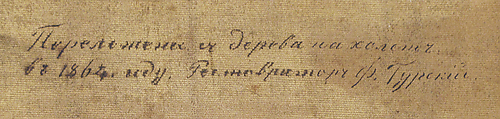 Переложена съ дерева на холстъ.
въ 1864 году. Реставраторъ Ф. Турскій.